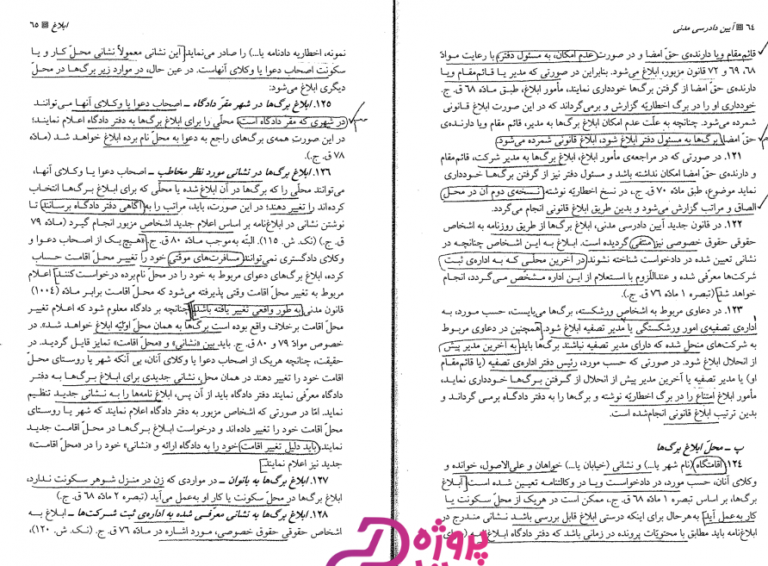 ۶۴ ■ آیین دادرسی مدنی
قائم‌مقام ویا دارنده‌ی حقّ امضا و در صورت عدم امکان، به مسئول دفتر، با رعایت موادّ
۶۸، ۶۹ و ۷۲ قانون مزبور، ابلاغ می‌شود. بنابراین در صورتی که مدیر یا قائم‌مقام ویا
دارنده‌ی حقّ امضا از گرفتن برگ‌ها خودداری نمایند، مأمور ابلاغ، طبق مادّه ۶۸ ق. ج.
خودداری او را در برگ اخطاریّه گزارش و برمی‌گرداند که در این صورت ابلاغ قانونی
شمرده می‌شود. چنانچه به علّت عدم امکان ابلاغ برگ‌ها به مدیر، قائم مقام ویا دارنده‌ی
حقّ امضا، برگ‌ها به مسئول دفتر ابلاغ شود، ابلاغ قانونی شمرده می‌شود.
۱۲۱. در صورتی که در مراجعه‌ی مأمور ابلاغ، ابلاغ برگ‌ها به مدیر شرکت، قائم‌مقام
و دارنده‌ی حقّ امضا امکان نداشته باشد و مسئول دفتر نیز از گرفتن برگ‌ها خودداری
نماید موضوع، طبق مادّه ۷۰ ق. ج، در نسخ اخطاریّه نوشته نسخه‌ی دوم آن در محل
الصاق و مراتب گزارش می‌شود و بدین طریق ابلاغ قانونی انجام می‌گردد.
۱۲۲. در قانون جدید آیین دادرسی مدنی، ابلاغ برگ‌ها از طریق روزنامه به اشخاص
حقوقی حقوق خصوصی نیز منتفی گردیده است. ابلاغ به این اشخاص چنانچه در
نشانی تعیین شده در دادخواست شناخته نشوند در آخرین محلّی که به اداره‌ی ثبت
شرکت‌ها معرفی شده و عنداللّزوم با استعلام از این اداره مشخّص می‌گردد، انجام
خواهد شد (تبصره ۱ مادّه ۷۶ ق. ج.).
۱۲۳. در دعاوی مربوط به اشخاص ورشکسته، برگ‌ها می‌بایست، حسب مورد، به
اداره‌ی تصفیه‌ی امور ورشکستگی یا مدیر تصفیه ابلاغ شود. همچنین در دعاوی مربوط
به شرکت‌های منحل شده که دارای مدیر تصفیه نباشند برگ‌ها باید به آخرین مدیر پیش
از انحلال ابلاغ شود. در صورتی که حسب مورد، رئیس دفتر اداره‌ی تصفیه (یا قائم‌مقام
او) یا مدیر تصفیه یا آخرین مدیر پیش از انحلال از گرفتن برگ‌ها خودداری نماید،
مأمور ابلاغ امتناع را در برگ اخطاریّه نوشته و برگ‌ها را به دفتر دادگاه برمی گرداند و
بدین ترتیب ابلاغ قانونی انجام‌شده است.
پ - محلّ ابلاغ برگ‌ها
۱۲۴. اقامتگاه (نام شهر یا...) و نشانی (خیابان یا...) خواهان و علی‌الاصول، خوانده و
وکلای آنان، حسب مورد، در دادخواست ویا در وکالتنامه تعیین شده است. ابلاغ
برگ‌ها، بر اساس تبصره ۱ مادّه ۶۸ ق. ج، ممکن است در هریک از محلّ سکونت یا
کار به‌عمل آید. به هرحال برای اینکه درستی ابلاغ قابل بررسی باشد نشانی مندرج در
ابلاغ‌نامه باید مطابق با محتویّات پرونده در زمانی باشد که دفتر دادگاه ابلاغ
ابلاغ ■ ۶۵
نمونه، اخطاریه دادنامه یا...) را صادر می‌نماید. این نشانی معمولاً نشانی محلّ کار و یا
سکونت اصحاب دعوا یا وکلای آنهاست. در عین حال، در موارد زیر برگ‌ها در محلّ
دیگری ابلاغ می‌شود:
۱۲۵. ابلاغ برگ‌ها در شهر مقرّ دادگاه - اصحاب دعوا یا وکلای آنها می‌توانند
در شهری که مقرّ دادگاه است، محلّی را برای ابلاغ برگ‌ها به دفتر دادگاه اعلام نمایند؛
در این صورت همه‌ی برگ‌های راجع به دعوا به محلّ نام برده ابلاغ خواهد شد (مادّه
۷۸ ق. ج.).
۱۲۶. ابلاغ برگ‌ها در نشانی مورد نظر مخاطب - اصحاب دعوا یا وکلای آنها،
می‌توانند محلّی را که برگ‌ها در آن ابلاغ شده یا محلّی که برای ابلاغ برگ‌ها انتخاب
کرده‌اند را تغییر دهند؛ در این صورت، باید، مراتب را به آگاهی دفتر دادگاه برسانند تا
نوشتن نشانی در ابلاغ‌نامه بر اساس اعلام جدید اشخاص مزبور انجام گیرد (مادّه ۷۹
ق. ج.) (نک. ش. ۱۱۵). البتّه به‌موجب مادّه ۸۰ ق. ج. «هیچ‌یک از اصحاب دعوا و
وکلای دادگستری نمی‌توانند مسافرت‌های موقّتی خود را تغییر محل اقامت حساب
کرده، ابلاغ برگ‌های دعوای مربوط به خود را در محل نام‌برده درخواست‌کنند. اعلام
مربوط به تغییر محل اقامت وقتی پذیرفته می‌شود که محل اقامت برابر مادّه (۱۰۰۴)
قانون مدنی به طور واقعی تغییر یافته باشد. چنانچه بر دادگاه معلوم شود که اعلام تغییر
محل اقامت برخلاف واقع بوده است برگ‌ها به همان محل اوّلیّه ابلاغ خواهد شد». در
خصوص موادّ ۷۹ و ۸۰ ق. ج. باید بین «نشانی» و «محل اقامت» تمایز قایل گردید. در
حقیقت، چنانچه هریک از اصحاب دعوا یا وکلای آنان، بی آنکه شهر یا روستای محلّ
اقامت خود را تغییر دهند در همان محل، نشانی جدیدی برای ابلاغ برگ‌ها به دفتر
دادگاه معرفی نمایند دفتر دادگاه باید از آن پس، ابلاغ نامه‌ها را به نشانی جدید تنظیم
نماید. امّا در صورتی که اشخاص مزبور به دفتر دادگاه اعلام نمایند که شهر یا روستای
محل اقامت خود را تغییر داده‌اند و درخواست ابلاغ برگ‌ها در محل اقامت جدید
نمایند، باید دلیل تغییر اقامت خود را به دادگاه ارائه و «نشانی» خود را در «محل اقامت»
جدید نیز اعلام نمایند.
۱۲۷. ابلاغ برگ‌ها به بانوان - در مواردی که زن در منزل شوهر سکونت ندارد،
ابلاغ برگ‌ها در محلّ سکونت یا کار او به‌عمل می‌آید (تبصره ۲ مادّه ۶۸ ق. ج.).
۱۲۸. ابلاغ برگ‌ها به نشانی معرفی شده به اداره‌ی ثبت شرکت‌ها - ابلاغ به
اشخاص حقوقی حقوق خصوصی، مورد اشاره در مادّه ۷۶ ق. ج. (نک. ش. ۱۲۰)،
پروژه